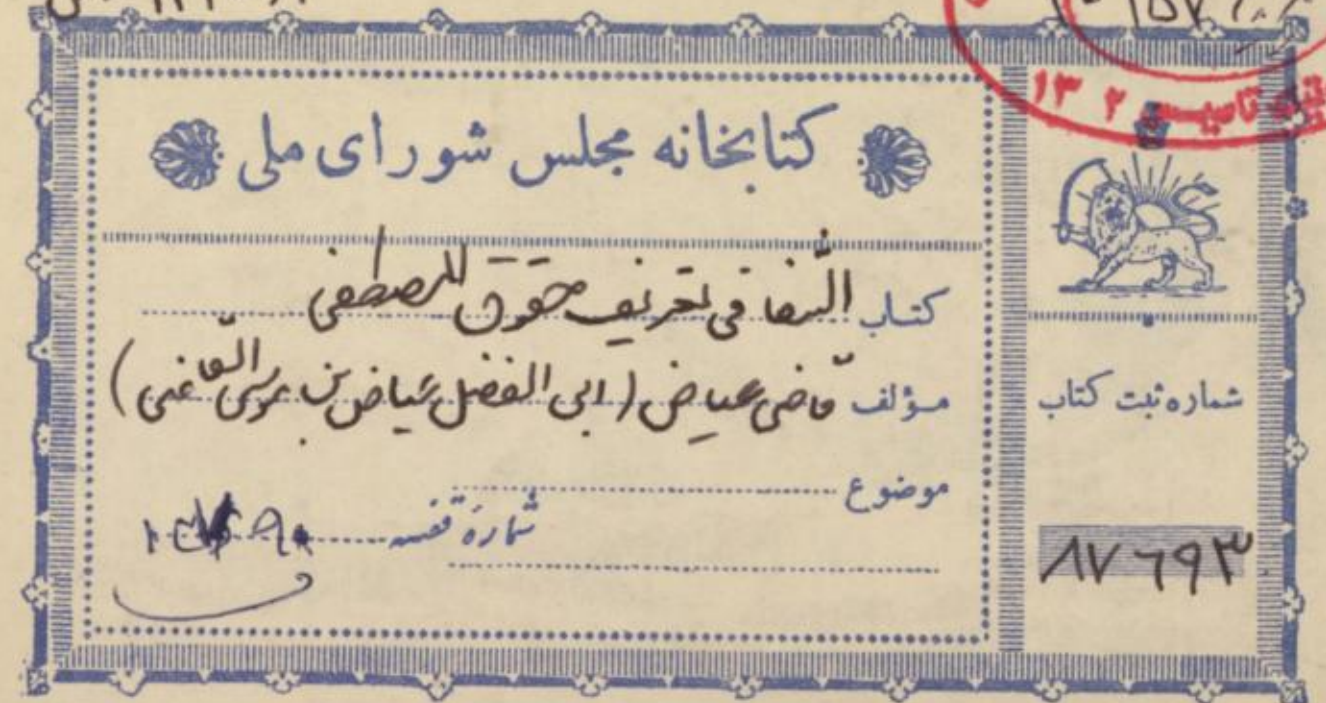 کتابخانه مجلس شورای ملی
کتاب الشفا فی تعریف حقوق المصطفی
مؤلف قاضی عیاض (ابی الفضل عیاض بن موسی القاضی)
موضوع
شماره قفسه
شماره ثبت کتاب
۸۷۶۹۳
تاسیس ۱۳۰۲